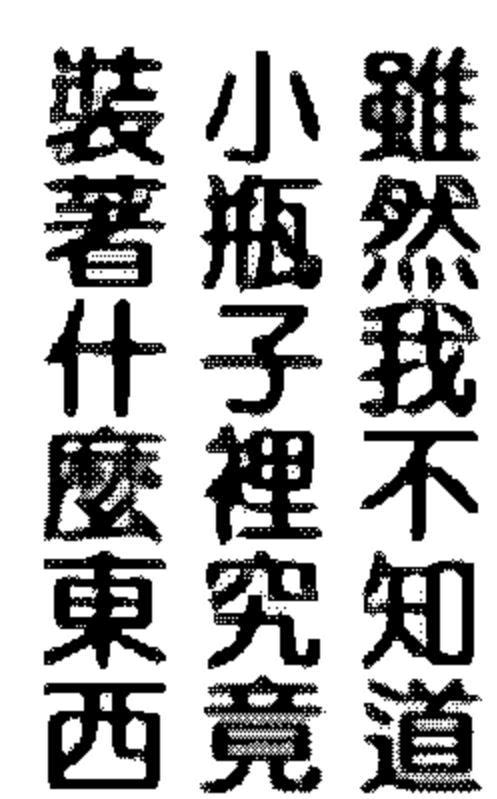 雖然我不知道
小瓶子裡究竟
裝著什麼東西